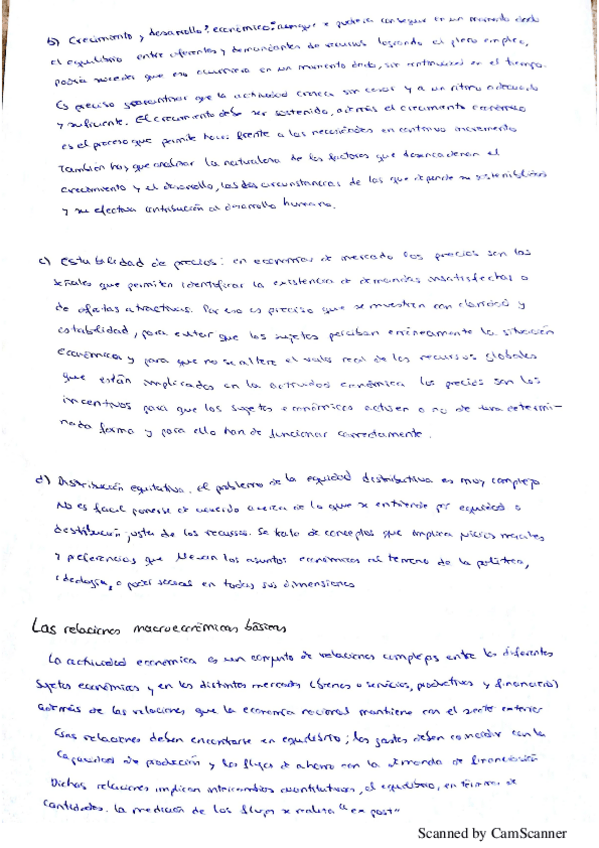 b) Crecimiento y desarrollo económico: aunque se pudiera conseguir en un momento dado
el equilibrio entre oferentes y demandantes de recursos logrando el pleno empleo,
podría suceder que eso ocurriera en un momento dado, sin continuidad en el tiempo.
Es preciso garantizar que la actividad crezca sin cesar y a un ritmo adecuado
y suficiente. El crecimiento debe ser sostenido, además el crecimiento económico
es el proceso que permite hacer frente a las necesidades en continuo incremento
También hay que analizar la naturaleza de los factores que desencadenan el
crecimiento y el desarrollo, las circunstancias de las que depende su sostenibilidad
y su efectiva contribución al desarrollo humano.
c) Estabilidad de precios: en economías de mercado los precios son las
señales que permiten identificar la existencia de demandas insatisfechas o
de ofertas atractivas. Por eso es preciso que se muestren con claridad y
estabilidad, para evitar que los sujetos perciban erróneamente la situación
económica y para que no se altere el valor real de los recursos globales
que están implicados en la actividad económica los precios son los
incentivos para que los sujetos económicos actúen o no de una determi-
nada forma y para ello han de funcionar correctamente.
d) Distribución equitativa. el problema de la equidad distributiva es muy complejo
No es fácil ponerse de acuerdo acerca de lo que se entiende por equidad o
distribución justa de los recursos. Se trata de conceptos que implica juicios morales
y preferencias que llevan los asuntos económicos al terreno de la política,
ideología, o poder sociales en todas sus dimensiones
Las relaciones macroeconómicas básicas
La actividad económica es un conjunto de relaciones complejas entre los diferentes
sujetos económicos y en los distintos mercados (bienes o servicios, productivos y financieros)
además de las relaciones que la economía nacional mantiene con el sector exterior
Esas relaciones deben encontrarse en equilibrio; los gastos deben coincidir con la
capacidad de producción y los flujos de ahorro con la demanda de financiación
Dichas relaciones implican intercambios cuantitativos, el equilibrio, en términos de
cantidades. La medición de los flujos se realiza "ex post"
Scanned by CamScanner